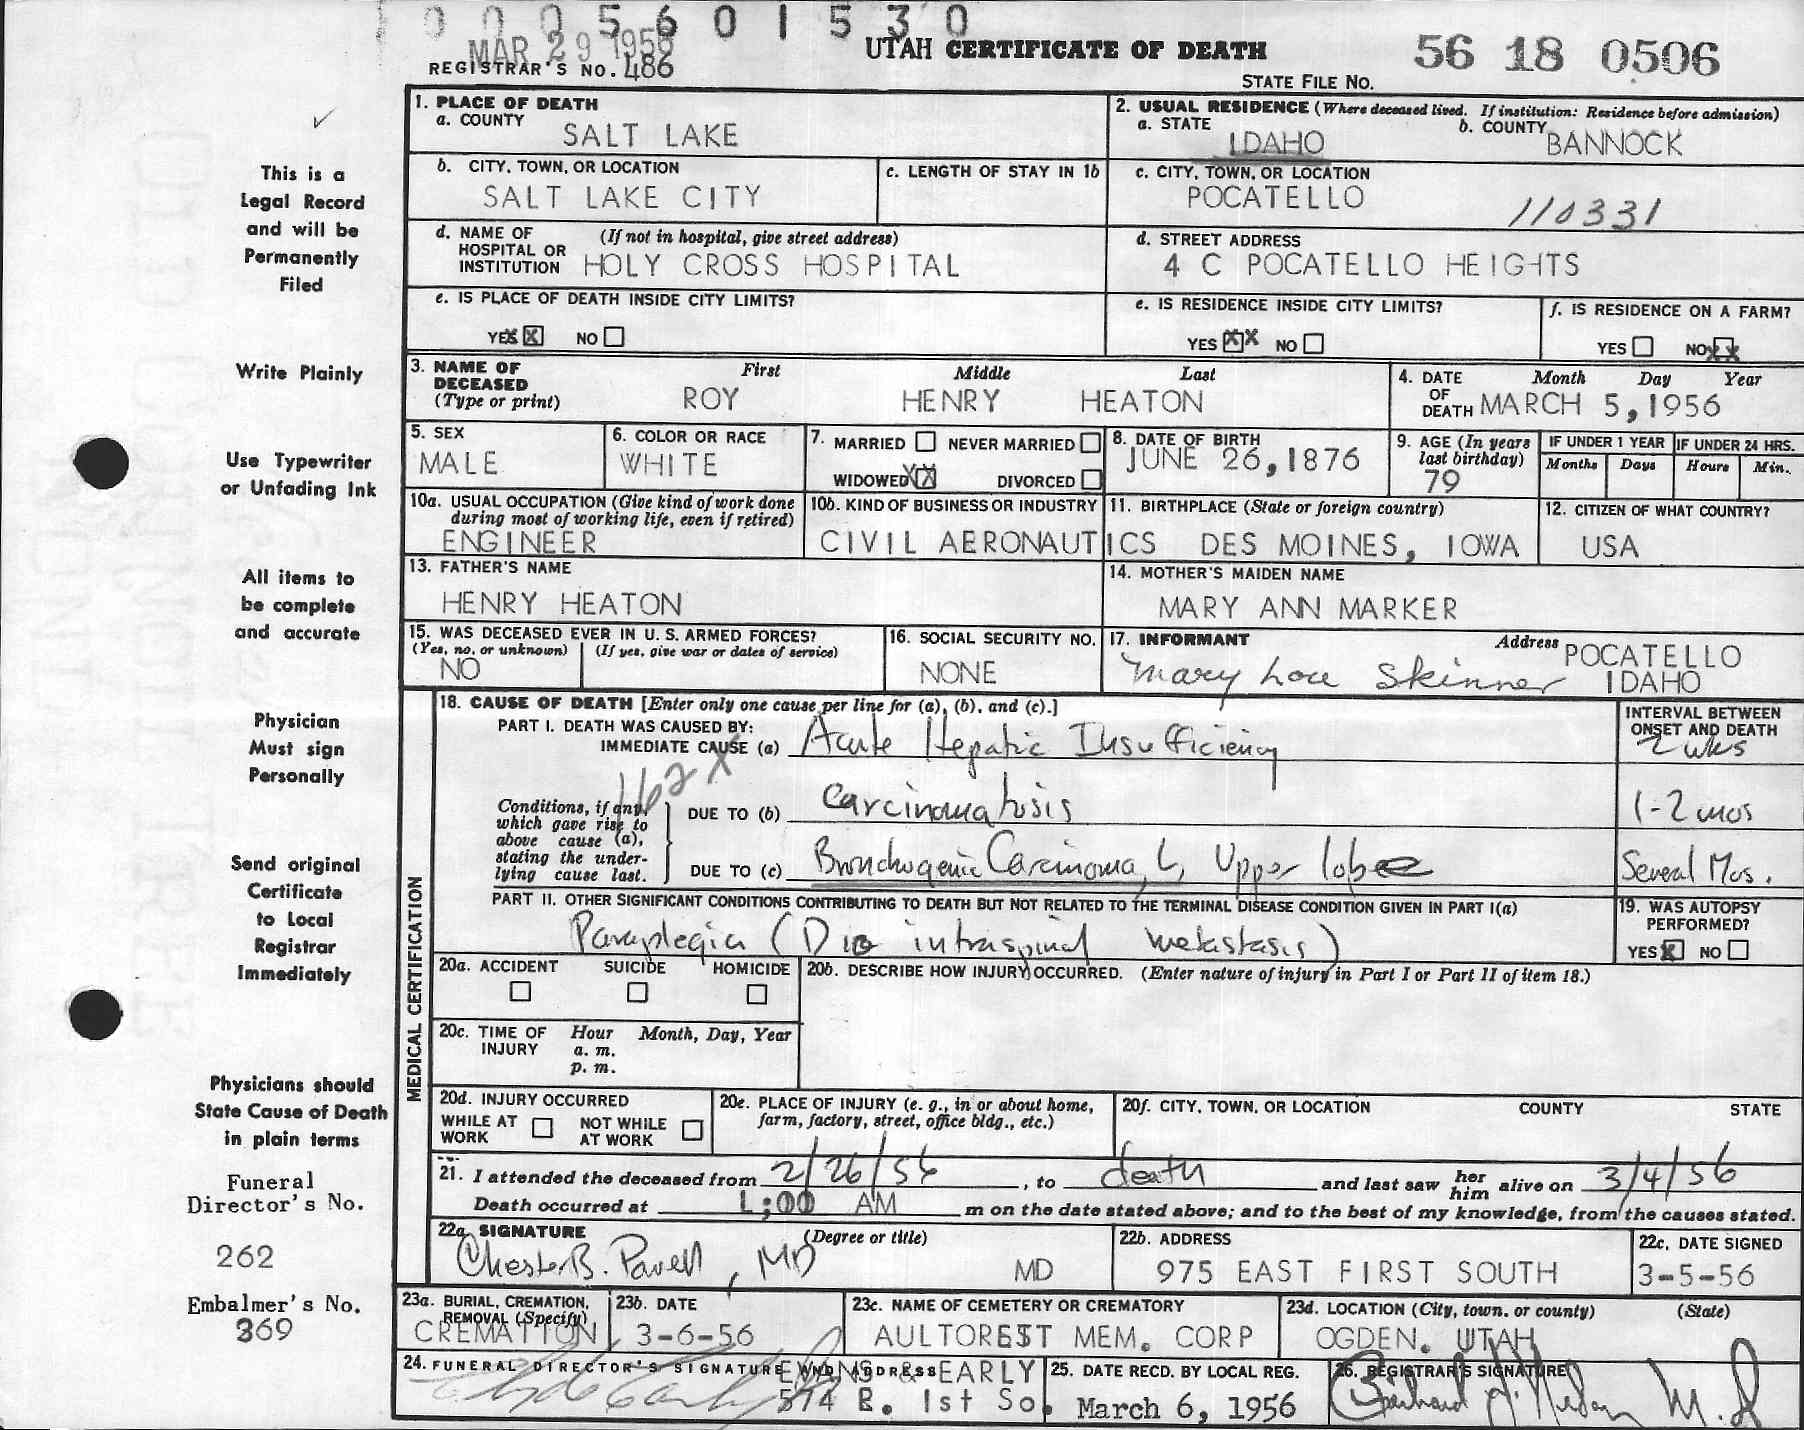 0005601530
MAR 29 1956
REGISTRAR'S NO. 486
UTAH CERTIFICATE OF DEATH
56 18 0506
STATE FILE NO.
This is a
Legal Record
and will be
Permanently
Filed
Write Plainly
Use Typewriter
or Unfading Ink
All items to
be complete
and accurate
Physician
Must sign
Personally
Send original
Certificate
to Local
Registrar
Immediately
Physicians should
State Cause of Death
in plain terms
Funeral
Director's No.
262
Embalmer's No.
369
1. PLACE OF DEATH
a. COUNTY
SALT LAKE
2. USUAL RESIDENCE (Where deceased lived. If institution: Residence before admission)
a. STATE IDAHO
b. COUNTY BANNOCK
b. CITY, TOWN, OR LOCATION
SALT LAKE CITY
c. LENGTH OF STAY IN 1b
c. CITY, TOWN, OR LOCATION
POCATELLO
110331
d. NAME OF HOSPITAL OR INSTITUTION
(If not in hospital, give street address)
HOLY CROSS HOSPITAL
d. STREET ADDRESS
4 C POCATELLO HEIGHTS
e. IS PLACE OF DEATH INSIDE CITY LIMITS?
YES X NO
e. IS RESIDENCE INSIDE CITY LIMITS?
YES XX NO
f. IS RESIDENCE ON A FARM?
YES NO XX
3. NAME OF DECEASED
(Type or print)
First Middle Last
ROY HENRY HEATON
4. DATE OF DEATH
Month Day Year
MARCH 5, 1956
5. SEX
MALE
6. COLOR OR RACE
WHITE
7. MARRIED NEVER MARRIED
WIDOWED XX DIVORCED
8. DATE OF BIRTH
JUNE 26, 1876
9. AGE (In years last birthday)
79
IF UNDER 1 YEAR
Months Days
IF UNDER 24 HRS.
Hours Min.
10a. USUAL OCCUPATION (Give kind of work done
during most of working life, even if retired)
ENGINEER
10b. KIND OF BUSINESS OR INDUSTRY
CIVIL AERONAUTICS
11. BIRTHPLACE (State or foreign country)
DES MOINES, IOWA
12. CITIZEN OF WHAT COUNTRY?
USA
13. FATHER'S NAME
HENRY HEATON
14. MOTHER'S MAIDEN NAME
MARY ANN MARKER
15. WAS DECEASED EVER IN U. S. ARMED FORCES?
(Yes, no, or unknown) (If yes, give war or dates of service)
NO
16. SOCIAL SECURITY NO.
NONE
17. INFORMANT Address
Mary Lou Skinner
POCATELLO
IDAHO
MEDICAL CERTIFICATION
18. CAUSE OF DEATH [Enter only one cause per line for (a), (b), and (c).]
INTERVAL BETWEEN
ONSET AND DEATH
PART I. DEATH WAS CAUSED BY:
IMMEDIATE CAUSE (a) Acute Hepatic Insufficiency
2 wks
162X
Conditions, if any,
which gave rise to
above cause (a),
stating the under-
lying cause last.
DUE TO (b) Carcinomatosis
1-2 mos
DUE TO (c) Bronchogenic Carcinoma, L, Upper lobe
Several Mos.
PART II. OTHER SIGNIFICANT CONDITIONS CONTRIBUTING TO DEATH BUT NOT RELATED TO THE TERMINAL DISEASE CONDITION GIVEN IN PART I(a)
Paraplegia (Due intraspinal metastasis)
19. WAS AUTOPSY PERFORMED?
YES X NO
20a. ACCIDENT SUICIDE HOMICIDE
20b. DESCRIBE HOW INJURY OCCURRED. (Enter nature of injury in Part I or Part II of item 18.)
20c. TIME OF INJURY
Hour Month, Day, Year
a. m.
p. m.
20d. INJURY OCCURRED
WHILE AT WORK NOT WHILE AT WORK
20e. PLACE OF INJURY (e. g., in or about home,
farm, factory, street, office bldg., etc.)
20f. CITY, TOWN, OR LOCATION COUNTY STATE
21. I attended the deceased from 2/26/56, to death and last saw her him alive on 3/4/56
Death occurred at 1:00 AM m on the date stated above; and to the best of my knowledge, from the causes stated.
22a. SIGNATURE (Degree or title)
Chester B. Powell, MD MD
22b. ADDRESS
975 EAST FIRST SOUTH
22c. DATE SIGNED
3-5-56
23a. BURIAL, CREMATION,
REMOVAL (Specify)
CREMATION
23b. DATE
3-6-56
23c. NAME OF CEMETERY OR CREMATORY
AULTOREST MEM. CORP
23d. LOCATION (City, town, or county) (State)
OGDEN. UTAH
24. FUNERAL DIRECTOR'S SIGNATURE AND ADDRESS
EVANS & EARLY
574 E. 1st So.
25. DATE RECD. BY LOCAL REG.
March 6, 1956
26. REGISTRAR'S SIGNATURE